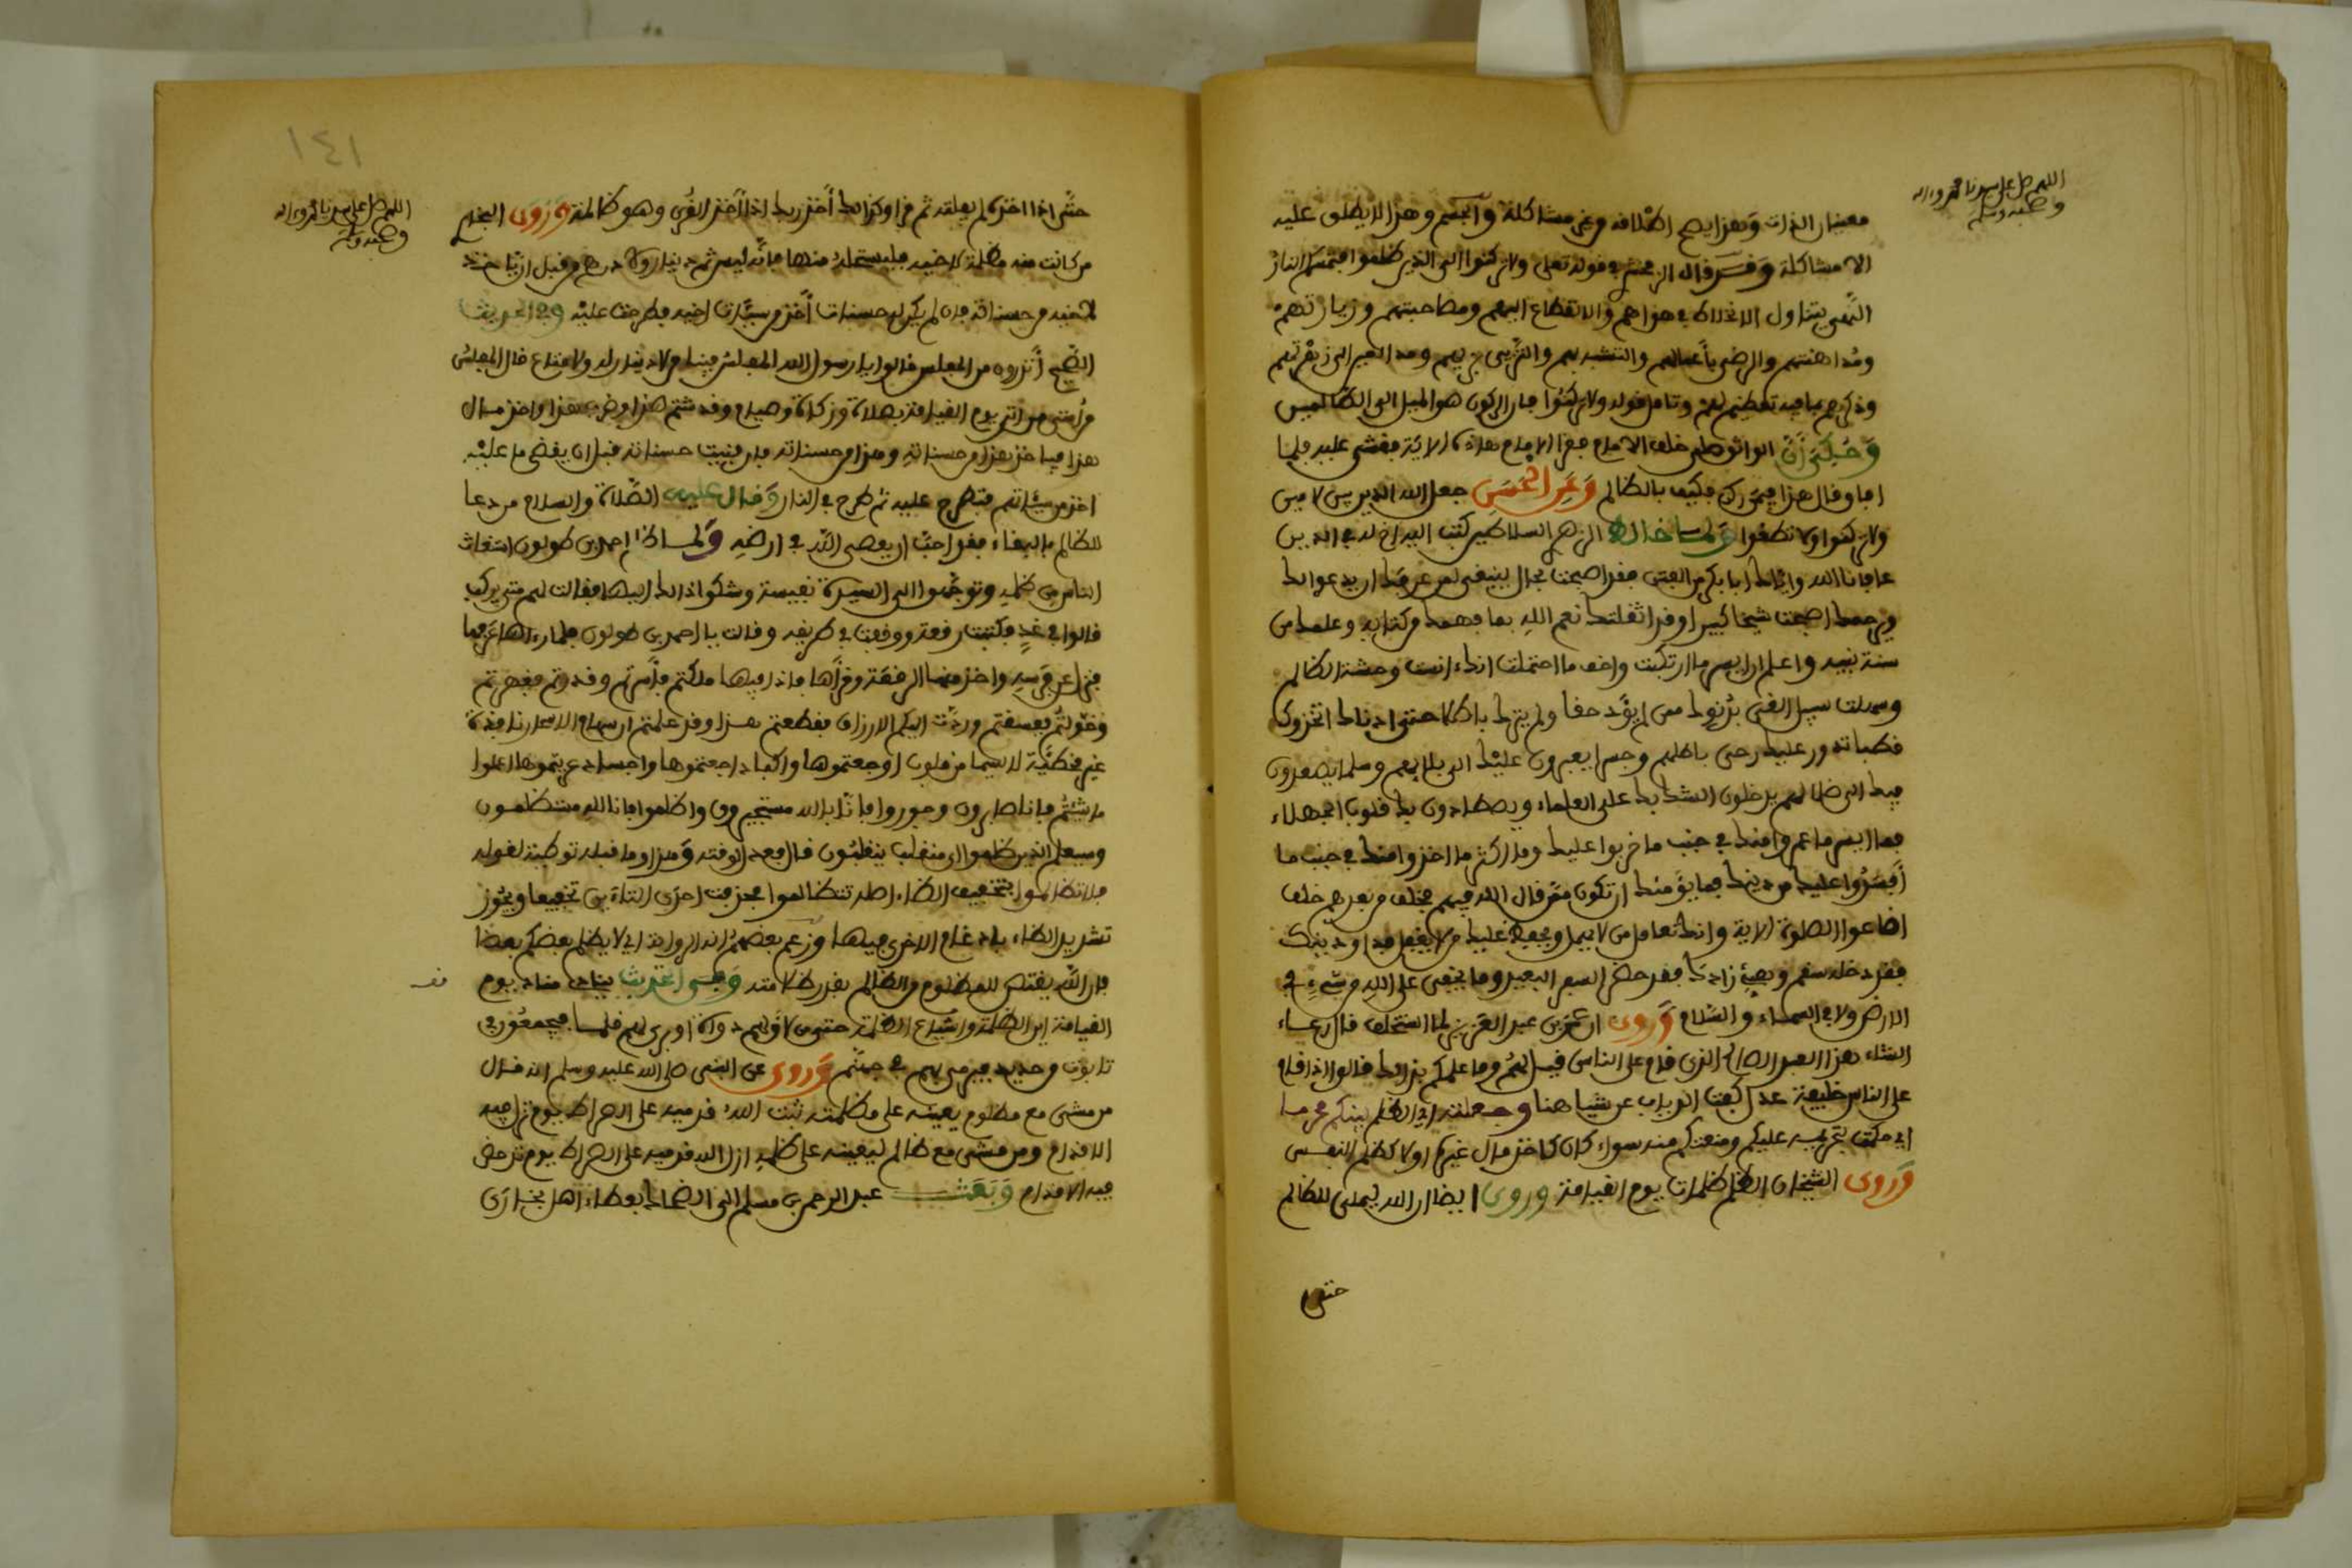 اللهم صل على سيدنا محمد وءاله
وصحبه وسلم
معنيان الذات وهذا يصح اطلاقه من غير مشاكلة والجسم وهذا لا يطلق عليه
الا مشاكلة وقد قال الزمخشري في قوله تعلى ولا تركنوا الى الذين ظلموا فتمسكم النار
النهي يتناول الانحطاط في هواهم والانقطاع اليهم ومصاحبتهم وزيارتهم
ومداهنتهم والرضى بأعمالهم والتشبه بهم والتزيي بزيهم ومد العين الى زهرتهم
وذكرهم بما فيه تعظيم لهم وتامل قوله ولا تركنوا فان الركون هو الميل الى الظالمين
وحكي أن الواثق صلى خلف الامام فقرأ الامام هاذه الاية فغشي عليه فلما
افاق قال هذا فيمن ركن فكيف بالظالم وعن الحسن جعل الله الدين بين لاءين
ولا تركنوا ولا تطغوا ولما خالط الزهري السلاطين كتب اليه اخ له في الدين
عافانا الله واياك أبا بكر من الفتن فقد اصبحت بحال ينبغي لمن عرفك ان يدعو لك
ويرحمك اصبحت شيخا كبيرا وقد اثقلتك نعم الله بما فهمك من كتابه وعلمك من
سنة نبيه واعلم ان ايسر ما ارتكبت واخف ما احتملت انك ءانست وحشة الظالم
وسهلت سبيل الغي بدنوك ممن لم يؤد حقا ولم يترك باطلا حين ادناك اتخذوك
قطبا تدور عليك رحى باطلهم وجسرا يعبرون عليك الى بلائهم وسلما يصعدون
فيك الى ضلالهم يدخلون الشك بك على العلماء ويصطادون بك قلوب الجهلاء
فما ايسر ما عمروا لك في جنب ما خربوا عليك وما اكثر ما اخذوا منك في جنب ما
أفسدوا عليك من دينك فما يؤمنك ان تكون ممن قال الله فيهم فخلف من بعدهم خلف
اضاعوا الصلوة الاية وانك تعامل من لا يجهل ويحفظ عليك من لا يغفل فداو دينك
فقد دخله سقم وهيئ زادك فقد حضر السفر البعيد وما يخفى على الله من شيء في
الارض ولا في السماء والسلام وروى ان عمر بن عبد العزيز لما استخلف قال رعاء
الشاء من هذا العبد الصالح الذي قام على الناس قيل لهم وما علمكم بذالك قالوا اذا قام
على الناس خليفة عدل كفت الذياب عن شياهنا وجعلته اي الظلم بينكم محرما
اي حكمت بتحريمه عليكم ومنعتكم منه سواء كان كاخذ مال غيركم او لا كظلم النفس
وروى الشيخان الظلم ظلمات يوم القيامة وروى ايضا ان الله ليملي للظالم
حتى
١٤١
اللهم صل على سيدنا محمد وءاله
وصحبه وسلم
حتى اذا اخذه لم يفلته ثم قرأ وكذالك أخذ ربك اذا أخذ القرى وهي ظالمة وروى البخاري
من كانت عنده مظلمة لاخيه فليستحله منها فانه ليس ثم دينار ولا درهم من قبل ان يؤخذ
لاخيه من حسناته فان لم يكن له حسنات أخذ من سيئات اخيه فطرحت عليه وفي الحديث
الصحيح أتدرون من المفلس قالوا يا رسول الله المفلس فينا من لا دينار له ولا متاع قال المفلس
من أمتي من اتى يوم القيامة بصلاة وزكاة وصيام وقد شتم هذا وضرب هذا واخذ مال
هذا فياخذ هذا من حسناته وهذا من حسناته فان فنيت حسناته قبل ان يقضي ما عليه
اخذ من سيئاتهم فتطرح عليه ثم طرح في النار وقال عليه الصلاة والسلام من دعا
للظالم بالبقاء فقد احب ان يعصى الله في ارضه ولما ظلم احمد بن طولون استغاث
الناس من ظلمه وتوجهوا الى السيدة نفيسة وشكوا ذالك اليها فقالت لهم متى يركب
قالوا في غد فكتبت رقعة ووقفت في طريقه وقالت يا احمد بن طولون فلما رءاها عرفها
فنزل عن فرسه واخذ منها الرقعة وقرأها فاذا فيها ملكتم فأسرتم وقدرتم فقهرتم
وخولتم فعسفتم وردت اليكم الارزاق فقطعتم هذا وقد علمتم ان سهام الاسحار نافذة
غير مخطئة لا سيما من قلوب اوجعتموها واكباد اجعتموها واجساد عريتموها اعملوا
ما شئتم فانا صابرون وجوروا فانا بالله مستجيرون واظلموا فانا لله متظلمون
وسيعلم الذين ظلموا اي منقلب ينقلبون قال فعدل لوقته وهذا وما قبله توطئة لقوله
فلا تظالموا بتخفيف الظاء اصله تتظالموا فحذفت احدى التاءين تخفيفا ويجوز
تشديد الظاء بادغام الاخرى فيها وزعم بعضهم انه الرواية اي لا يظلم بعضكم بعضا
فان الله يقتص للمظلوم من الظالم بقدر ظلامته وفي الحديث ينادي مناد يوم
القيامة اين الظلمة واشياع الظلمة حتى من لاق لهم دواة او برى لهم قلما فيجمعون في
تابوت من حديد فيرمى بهم في جهنم وروى عن النبي صلى الله عليه وسلم انه قال
من مشى مع مظلوم يعينه على مظلمته ثبت الله قدميه على الصراط يوم تزل فيه
الاقدام ومن مشى مع ظالم ليعينه على ظلمه ازل الله قدميه على الصراط يوم تدحض
فيه الاقدام وبعث عبد الرحمن بن مسلم الى الضحاك بعطاء اهل بخارى